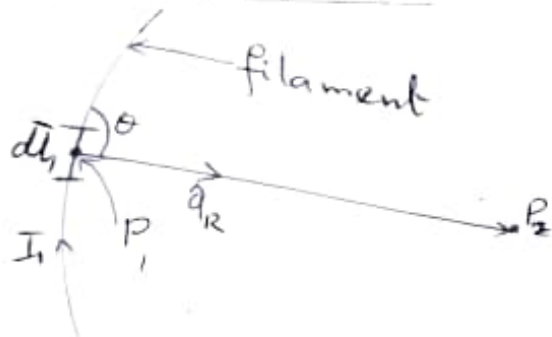 filament
θ
dL₁
a_R
P₂
P₁
I₁